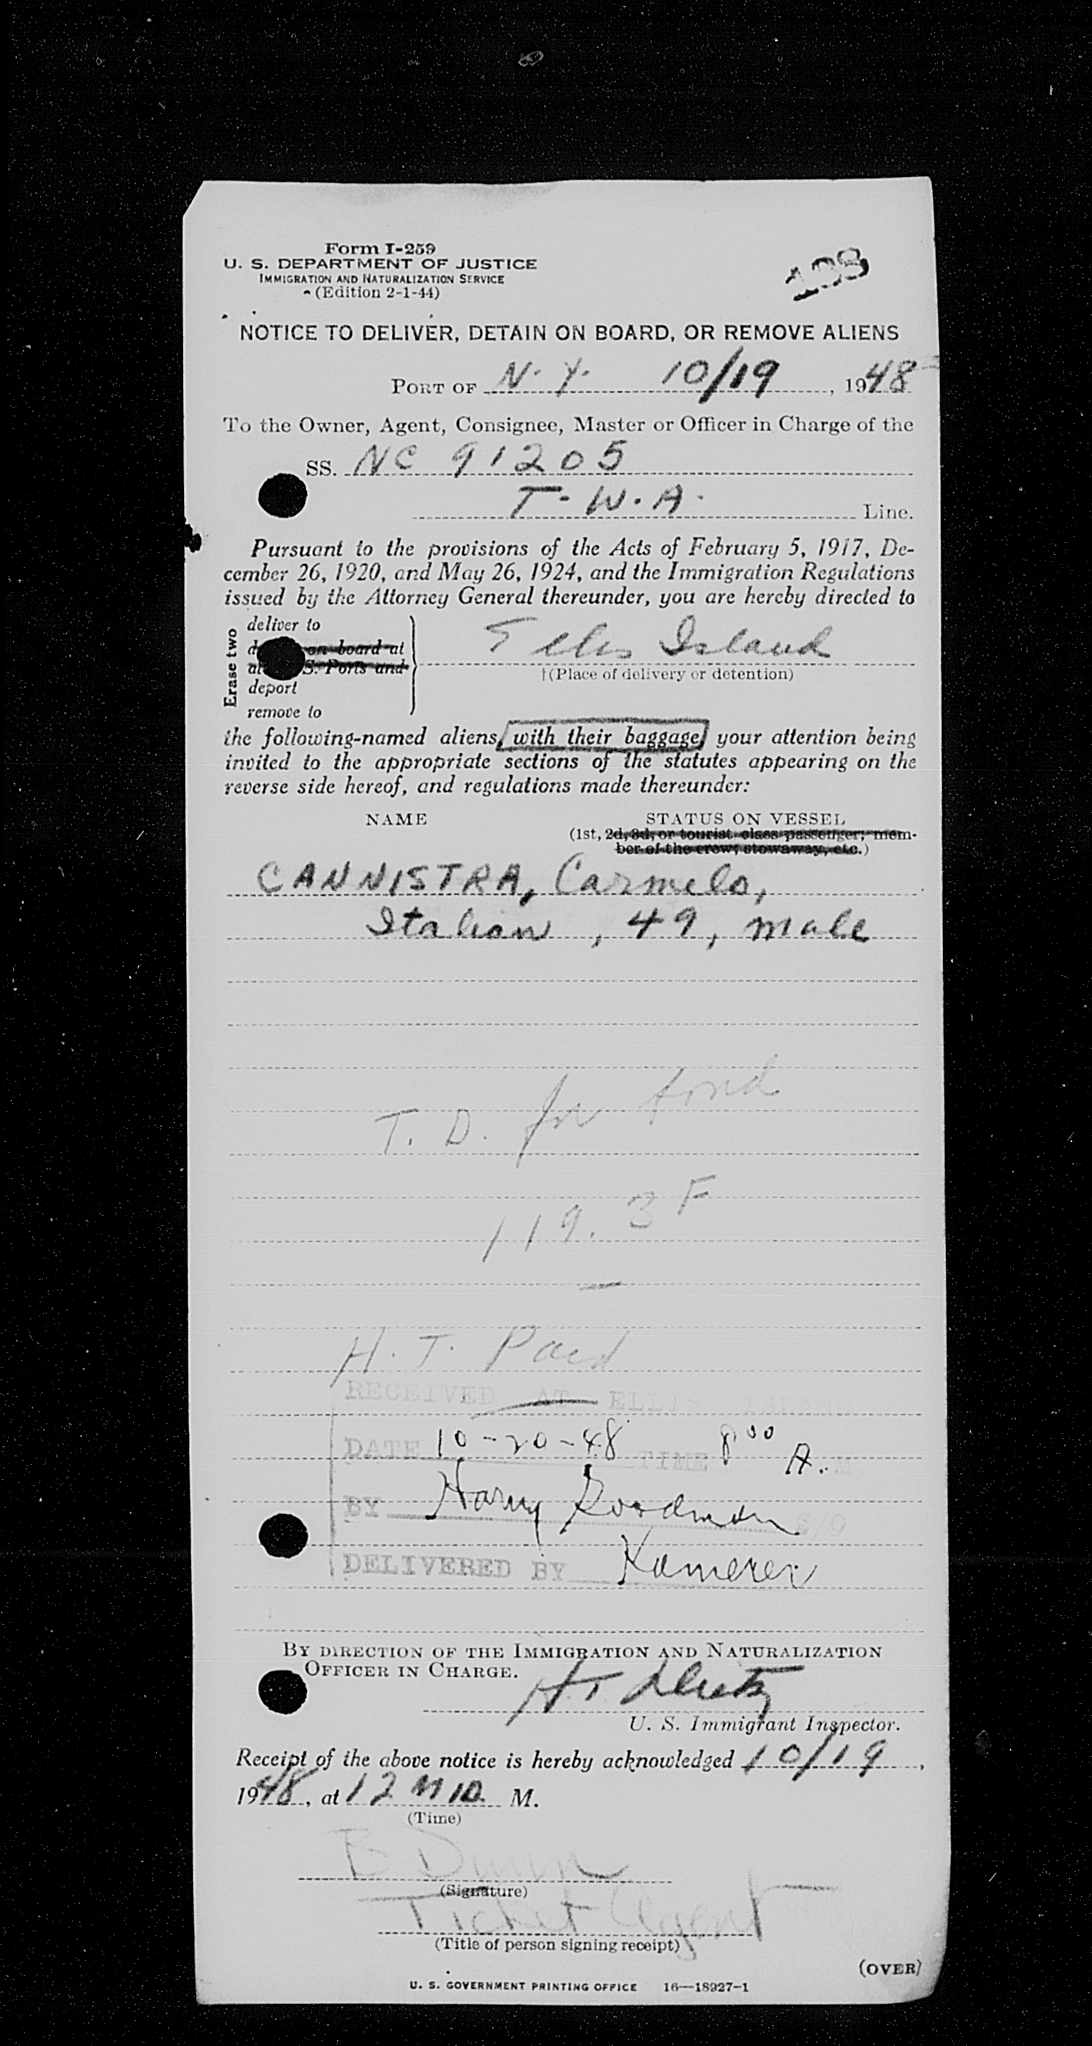 Form I-259
U. S. DEPARTMENT OF JUSTICE
IMMIGRATION AND NATURALIZATION SERVICE
(Edition 2-1-44)
NOTICE TO DELIVER, DETAIN ON BOARD, OR REMOVE ALIENS
PORT OF N. Y. 10/19, 1948
To the Owner, Agent, Consignee, Master or Officer in Charge of the
SS. NC 91205
T. W. A. Line.
Pursuant to the provisions of the Acts of February 5, 1917, De-
cember 26, 1920, and May 26, 1924, and the Immigration Regulations
issued by the Attorney General thereunder, you are hereby directed to
Erase two
deliver to
on board at
S. Ports and
deport
remove to
Ellis Island
†(Place of delivery or detention)
the following-named aliens, with their baggage, your attention being
invited to the appropriate sections of the statutes appearing on the
reverse side hereof, and regulations made thereunder:
NAME STATUS ON VESSEL
(1st, 2d, 3d, or tourist class passenger; mem-
ber of the crew; stowaway, etc.)
CANNISTRA, Carmelo,
Italian, 49, male
T. D. for
119. 3 F
H. T. Paid
RECEIVED AT ELLIS
DATE 10-20-48 TIME 8 00 A. M
BY Harry Goodman
DELIVERED BY Kamerer
BY DIRECTION OF THE IMMIGRATION AND NATURALIZATION
OFFICER IN CHARGE.
U. S. Immigrant Inspector.
Receipt of the above notice is hereby acknowledged 10/19,
1948, at 12 MID. M.
(Time)
(Signature)
Ticket Agent
(Title of person signing receipt)
(OVER)
U. S. GOVERNMENT PRINTING OFFICE 16—18927-1